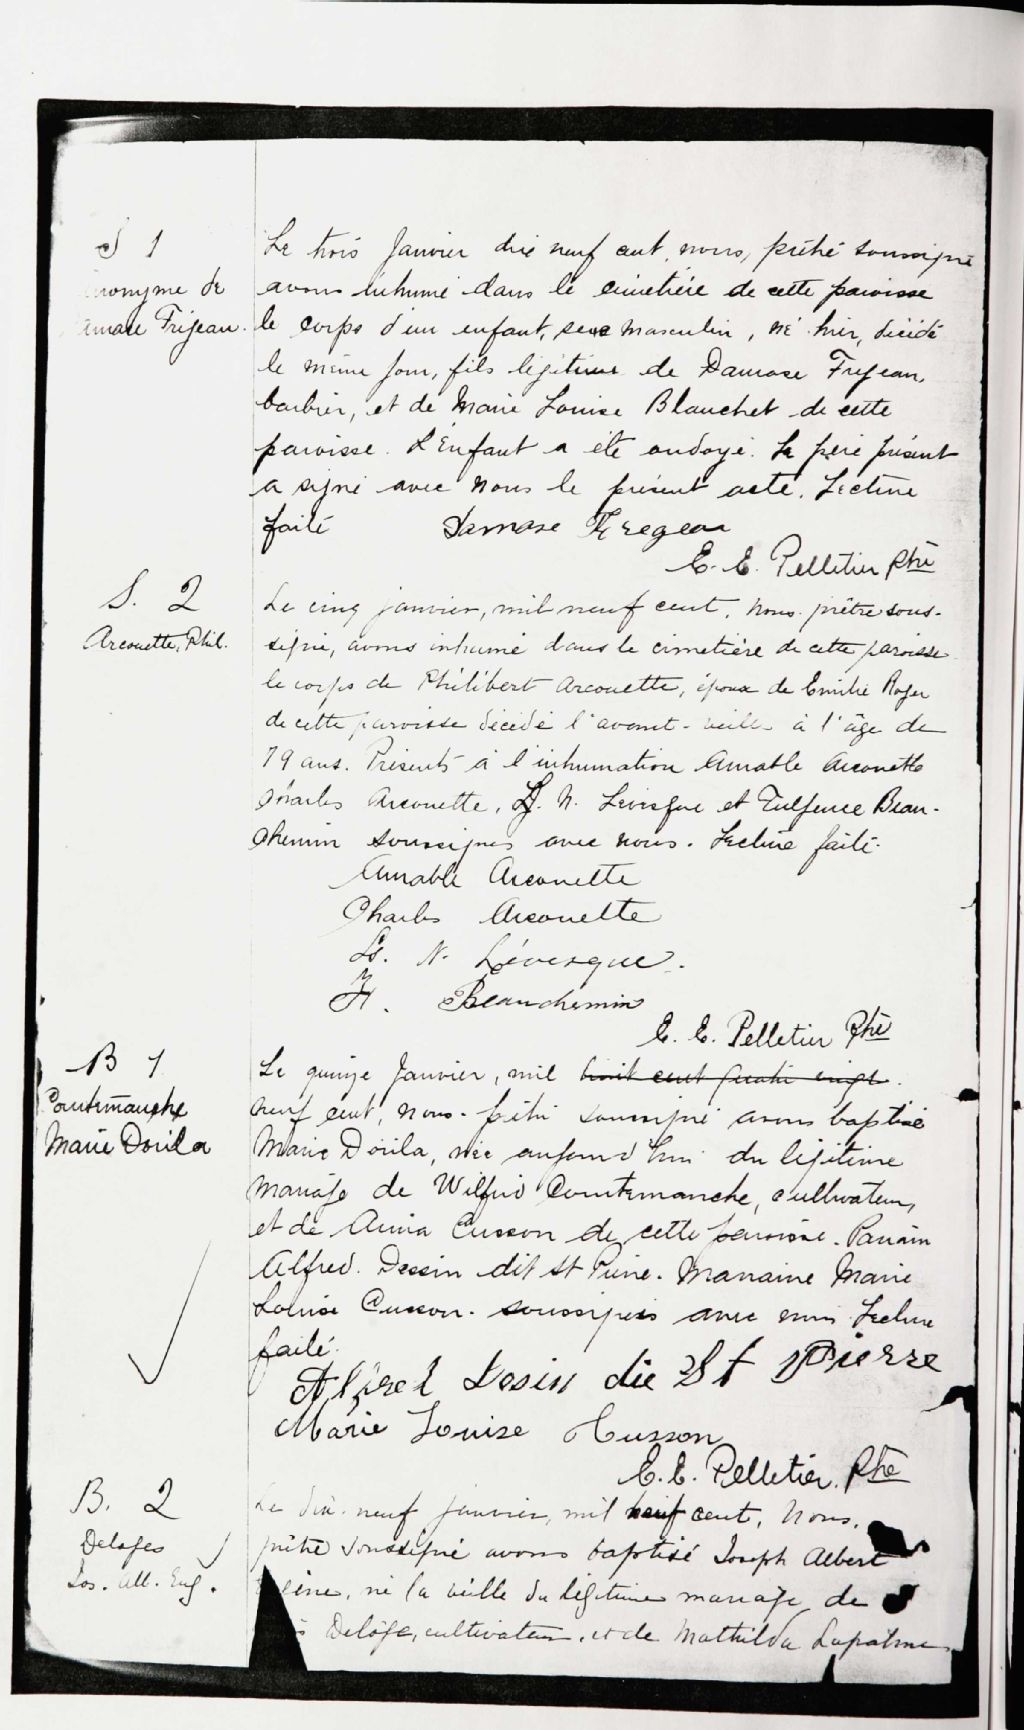 S 1
Anonyme de
Damase Frijeau.
Le trois Janvier dix neuf cent, nous, prêtre soussigné
avons inhumé dans le cimetière de cette paroisse
le corps d'un enfant, sexe masculin, né hier, décédé
le même jour, fils légitime de Damase Frijeau,
barbier, et de Marie Louise Blanchet de cette
paroisse. L'Enfant a été ondoyé. Le père présent
a signé avec nous le présent acte. Lecture
faite
Damase Fregeau
E. E. Pelletier Ptre
S. 2
Arcouette, Phil.
Le cinq janvier, mil neuf cent, nous prêtre sous-
signé, avons inhumé dans le cimetière de cette paroisse
le corps de Philibert Arcouette, époux de Emilie Roger
de cette paroisse décédé l'avant-veille à l'âge de
79 ans. Présents à l'inhumation Amable Arcouette
Charles Arcouette, Ls. N. Levesque et Fulgence Beau-
chemin soussignés avec nous. Lecture faite.
Amable Arcouette
Charles Arcouette
Ls. N. Lévesque.
F. Beauchemin
E. E. Pelletier Ptre
B 1
Courtemanche
Marie Dorila
Le quinze Janvier, mil huit cent quatre vingt
neuf cent, nous prêtre soussigné avons baptisé
Marie Dorila, née aujourd'hui du légitime
mariage de Wilfrid Courtemanche, cultivateur,
et de Anna Cusson de cette paroisse. Parrain
Alfred Dessin dit St Pierre. Marraine Marie
Louise Cusson. soussignés avec nous. Lecture
faite.
Alfred Desin die St Pierre
Marie Louise Cusson
E. E. Pelletier, Ptre
B. 2
Deloges
Jos. Alb. Eug.
Le dix-neuf janvier, mil neuf cent, Nous,
prêtre soussigné avons baptisé Joseph Albert
né la veille du légitime mariage de
Deloge, cultivateur, et de Mathilda Lapalme